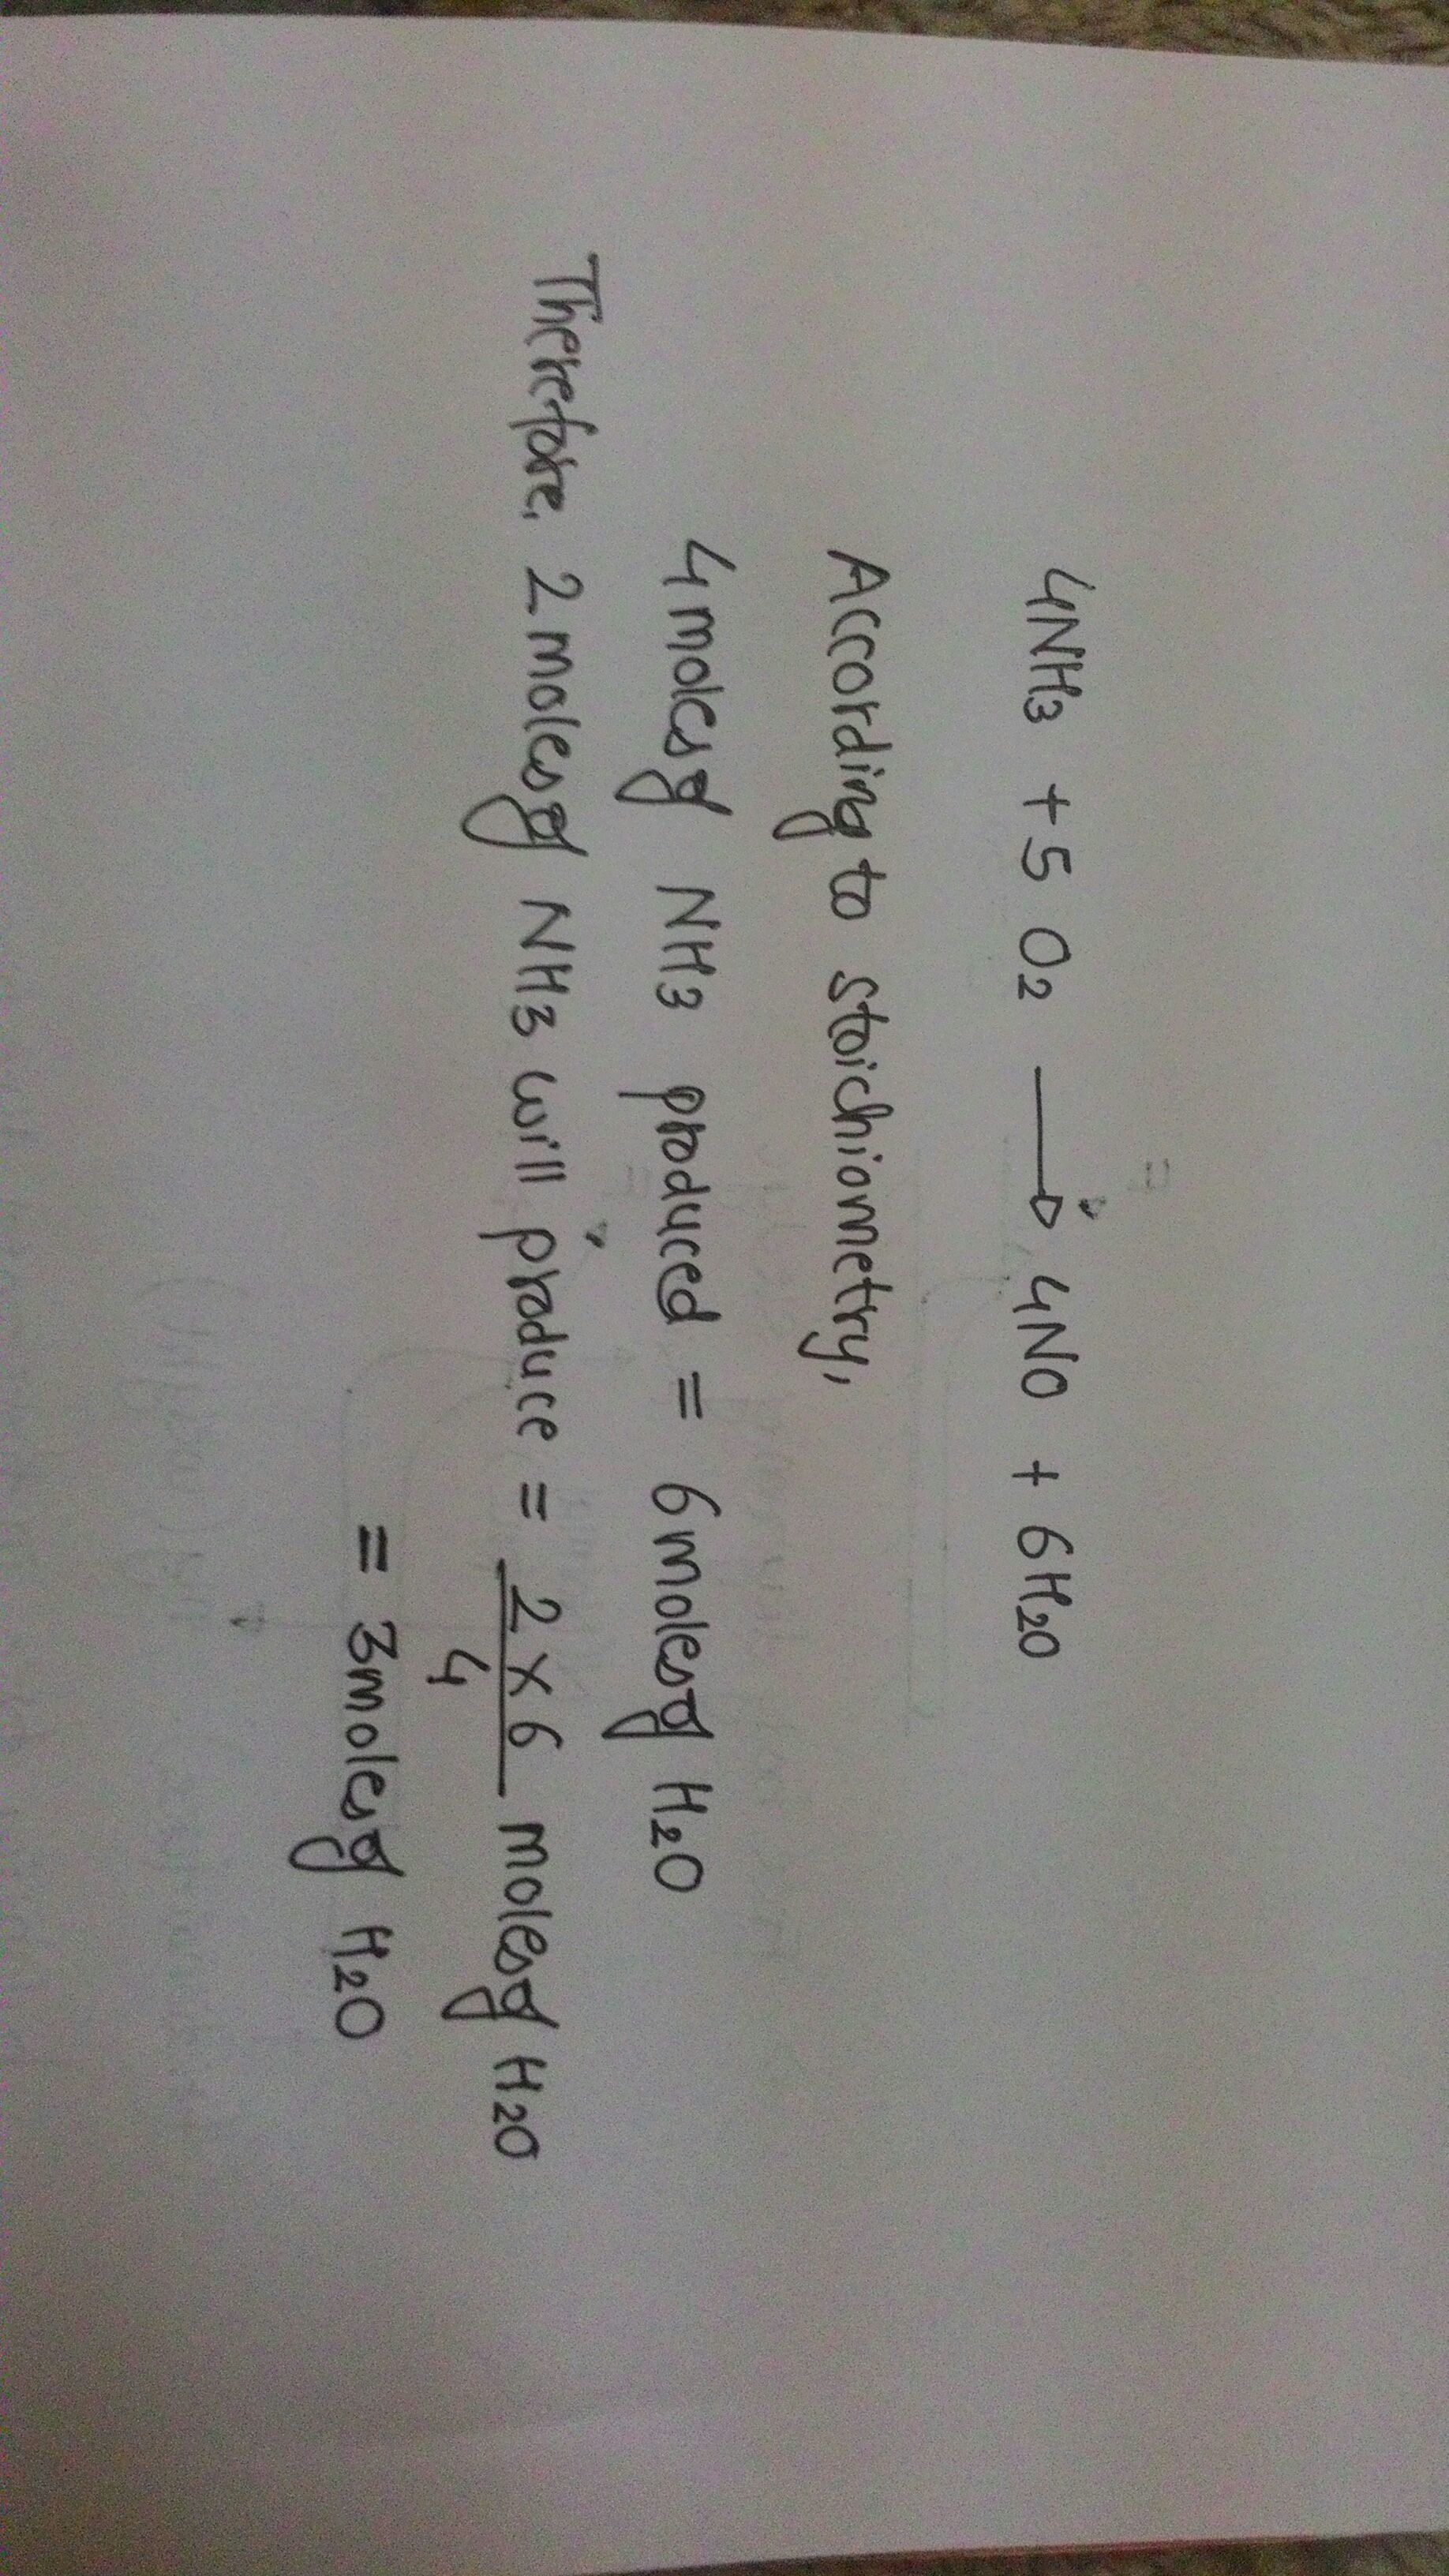 4NH₃ + 5 O₂ ⟶ 4NO + 6H₂O
According to stoichiometry,
4 moles of NH3 produced = 6 moles of H₂O
Therefore, 2 moles of NH3 will produce = 2 × 6 / 4 moles of H₂O
= 3 moles of H₂O